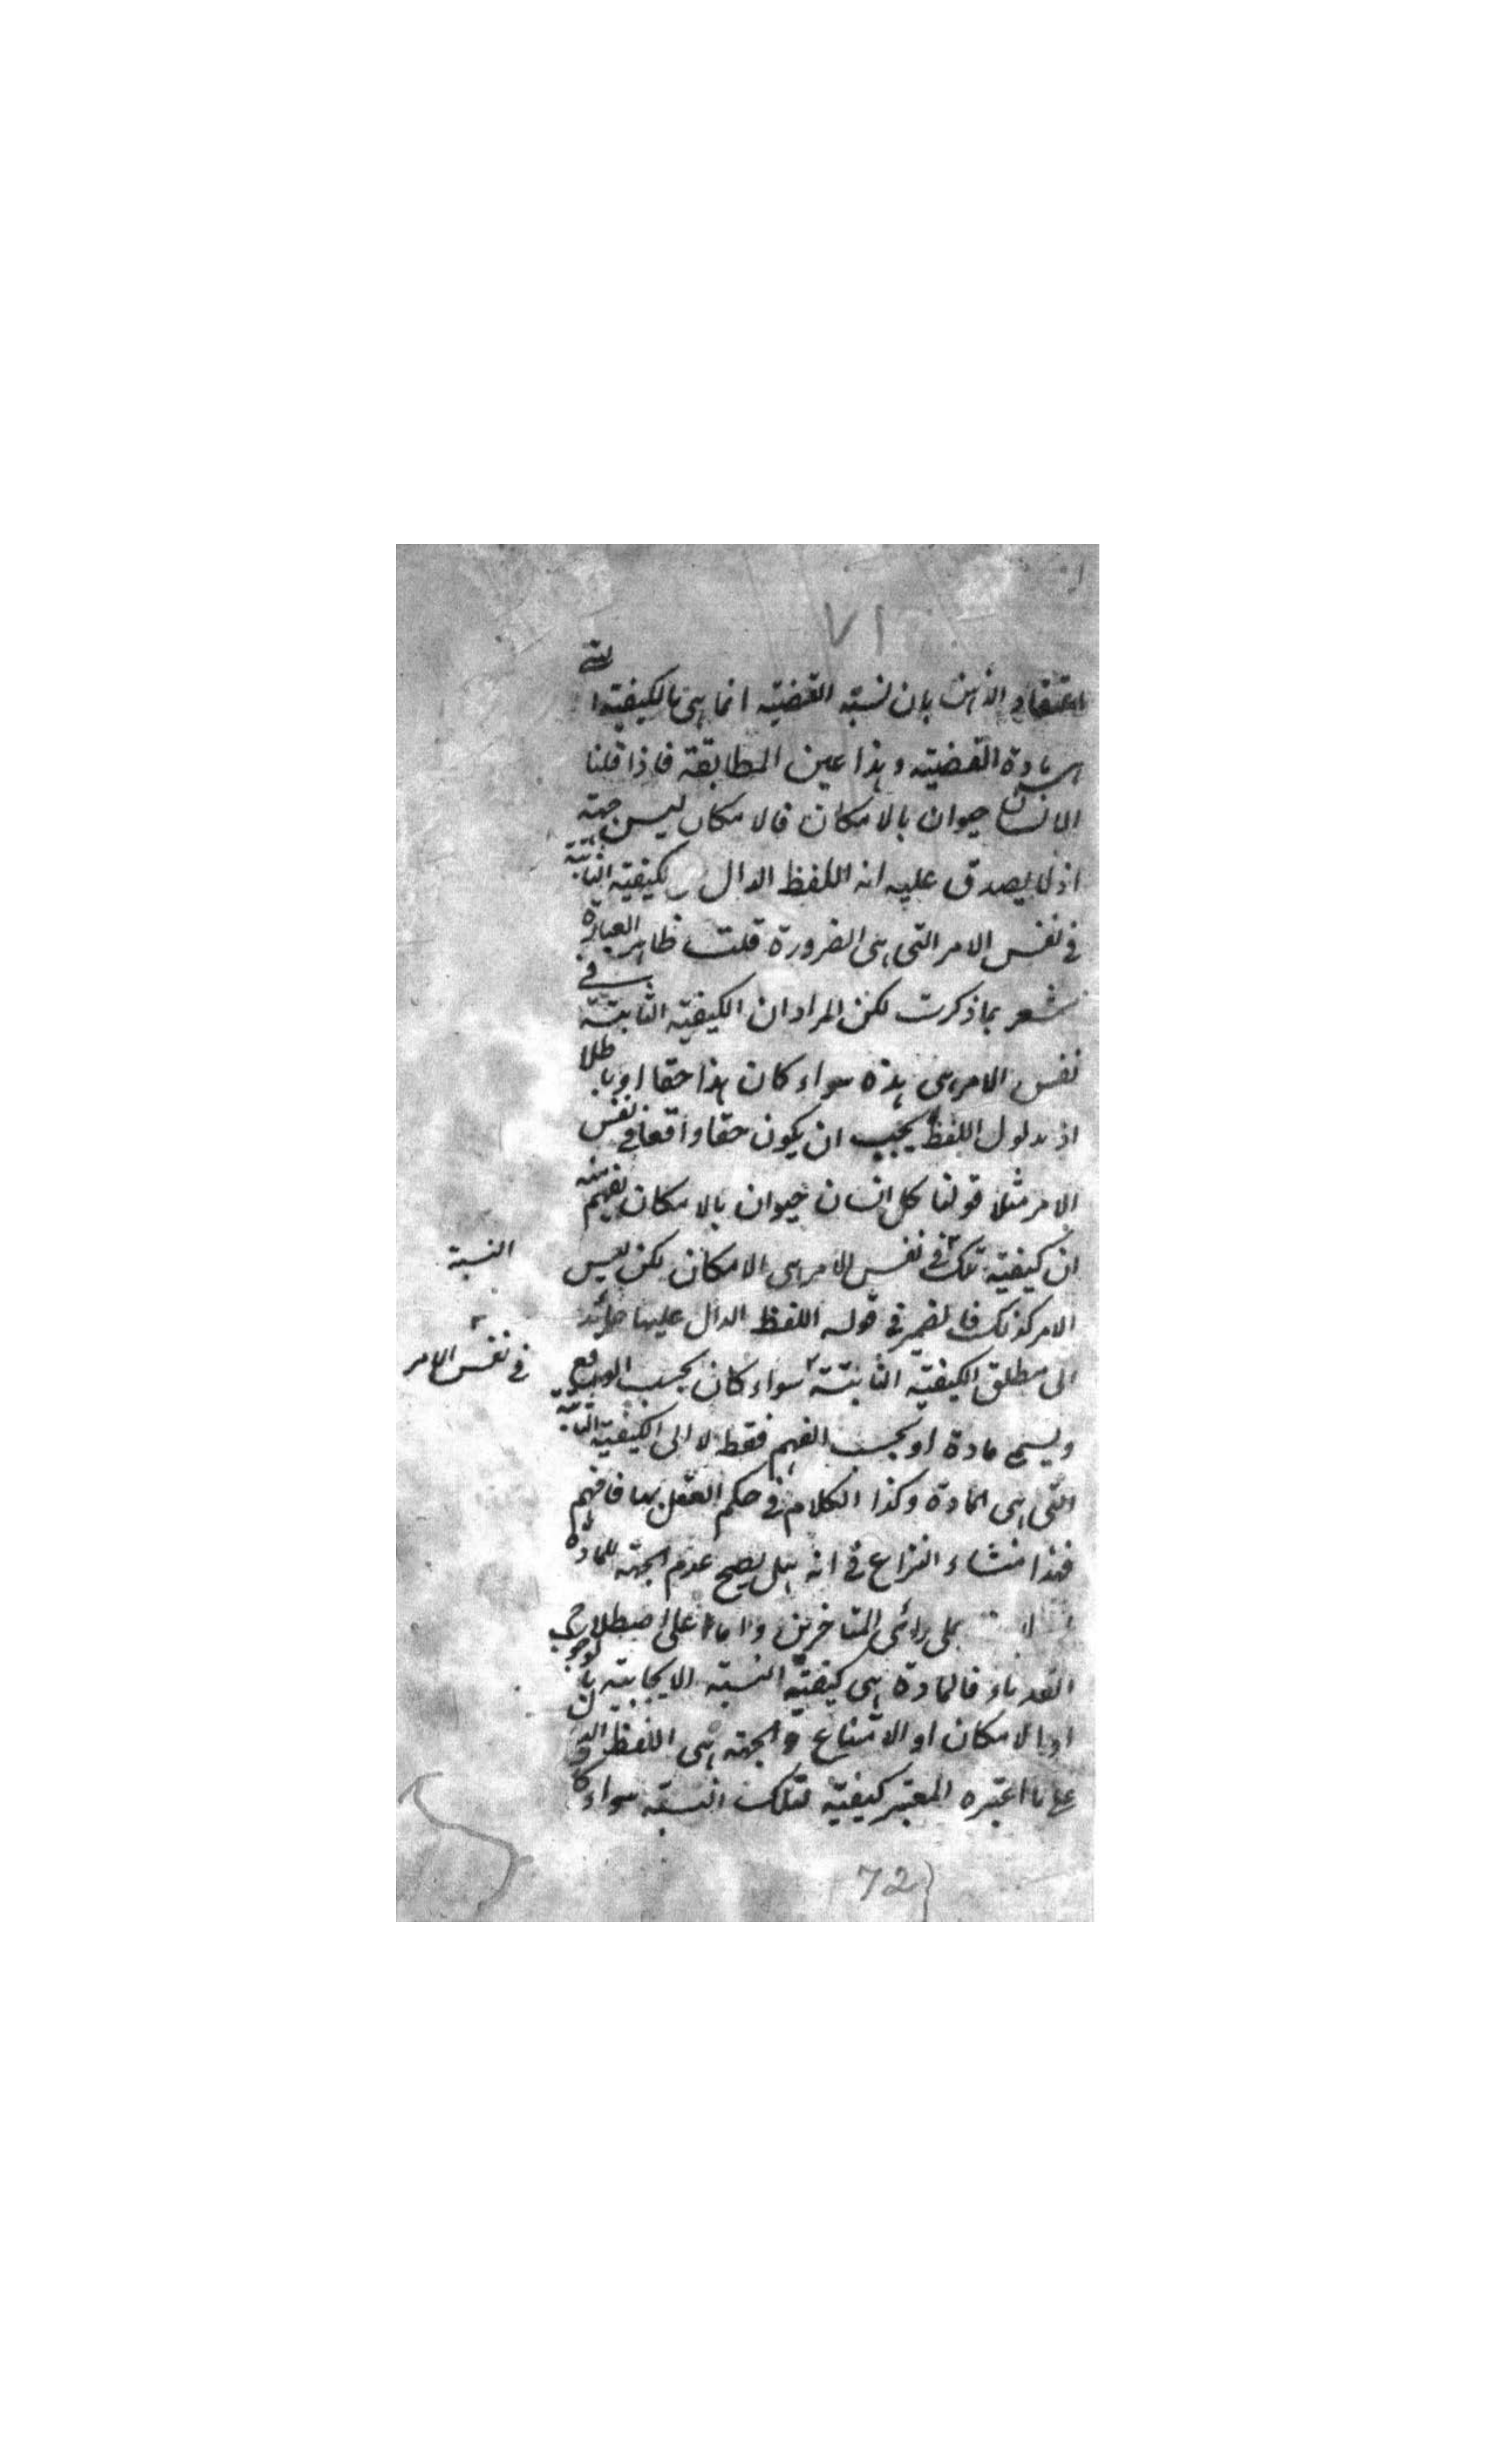 ٧١
اعتقاد الذهن بان نسبة القضية انما هى بالكيفية التى
هى مادة القضية وهذا عين المطابقة فاذا قلنا
الانسان حيوان بالامكان فالامكان ليس جهة
اذ لا يصدق عليه انه اللفظ الدال لكيفية الثابتة
فى نفس الامر التى هى الضرورة قلت ظاهر العبارة
يشعر بما ذكرت لكن المراد ان الكيفية الثابتة فى
نفس الامر هى هذه سواء كان هذا حقا او باطلا
اذ مدلول اللفظ يجب ان يكون حقا واقعا فى نفس
الامر مثلا قولنا كل انسان حيوان بالامكان يفهم منه
ان كيفية تلك فى نفس الامر هى الامكان لكن ليس
النسبة
الامر كذلك فالضمير فى قوله اللفظ الدال عليها عائد
الى مطلق الكيفية الثابتة سواء كان بحسب الواقع
فى نفس الامر
ويسمى مادة او بحسب الفهم فقط لا الى الكيفية الثابتة
التى هى المادة وكذا الكلام فى حكم العقل بها فافهم
فهذا منشاء النزاع فى انه هل يصح عدم الجهة للمادة
لا على رائى المتاخرين واما على اصطلاح
القدماء فالمادة هى كيفية النسبة الايجابية بالوجوب
او بالامكان او الامتناع والجهة هى اللفظ الدال
على ما اعتبره المعتبر كيفية لتلك النسبة سواء كان
72